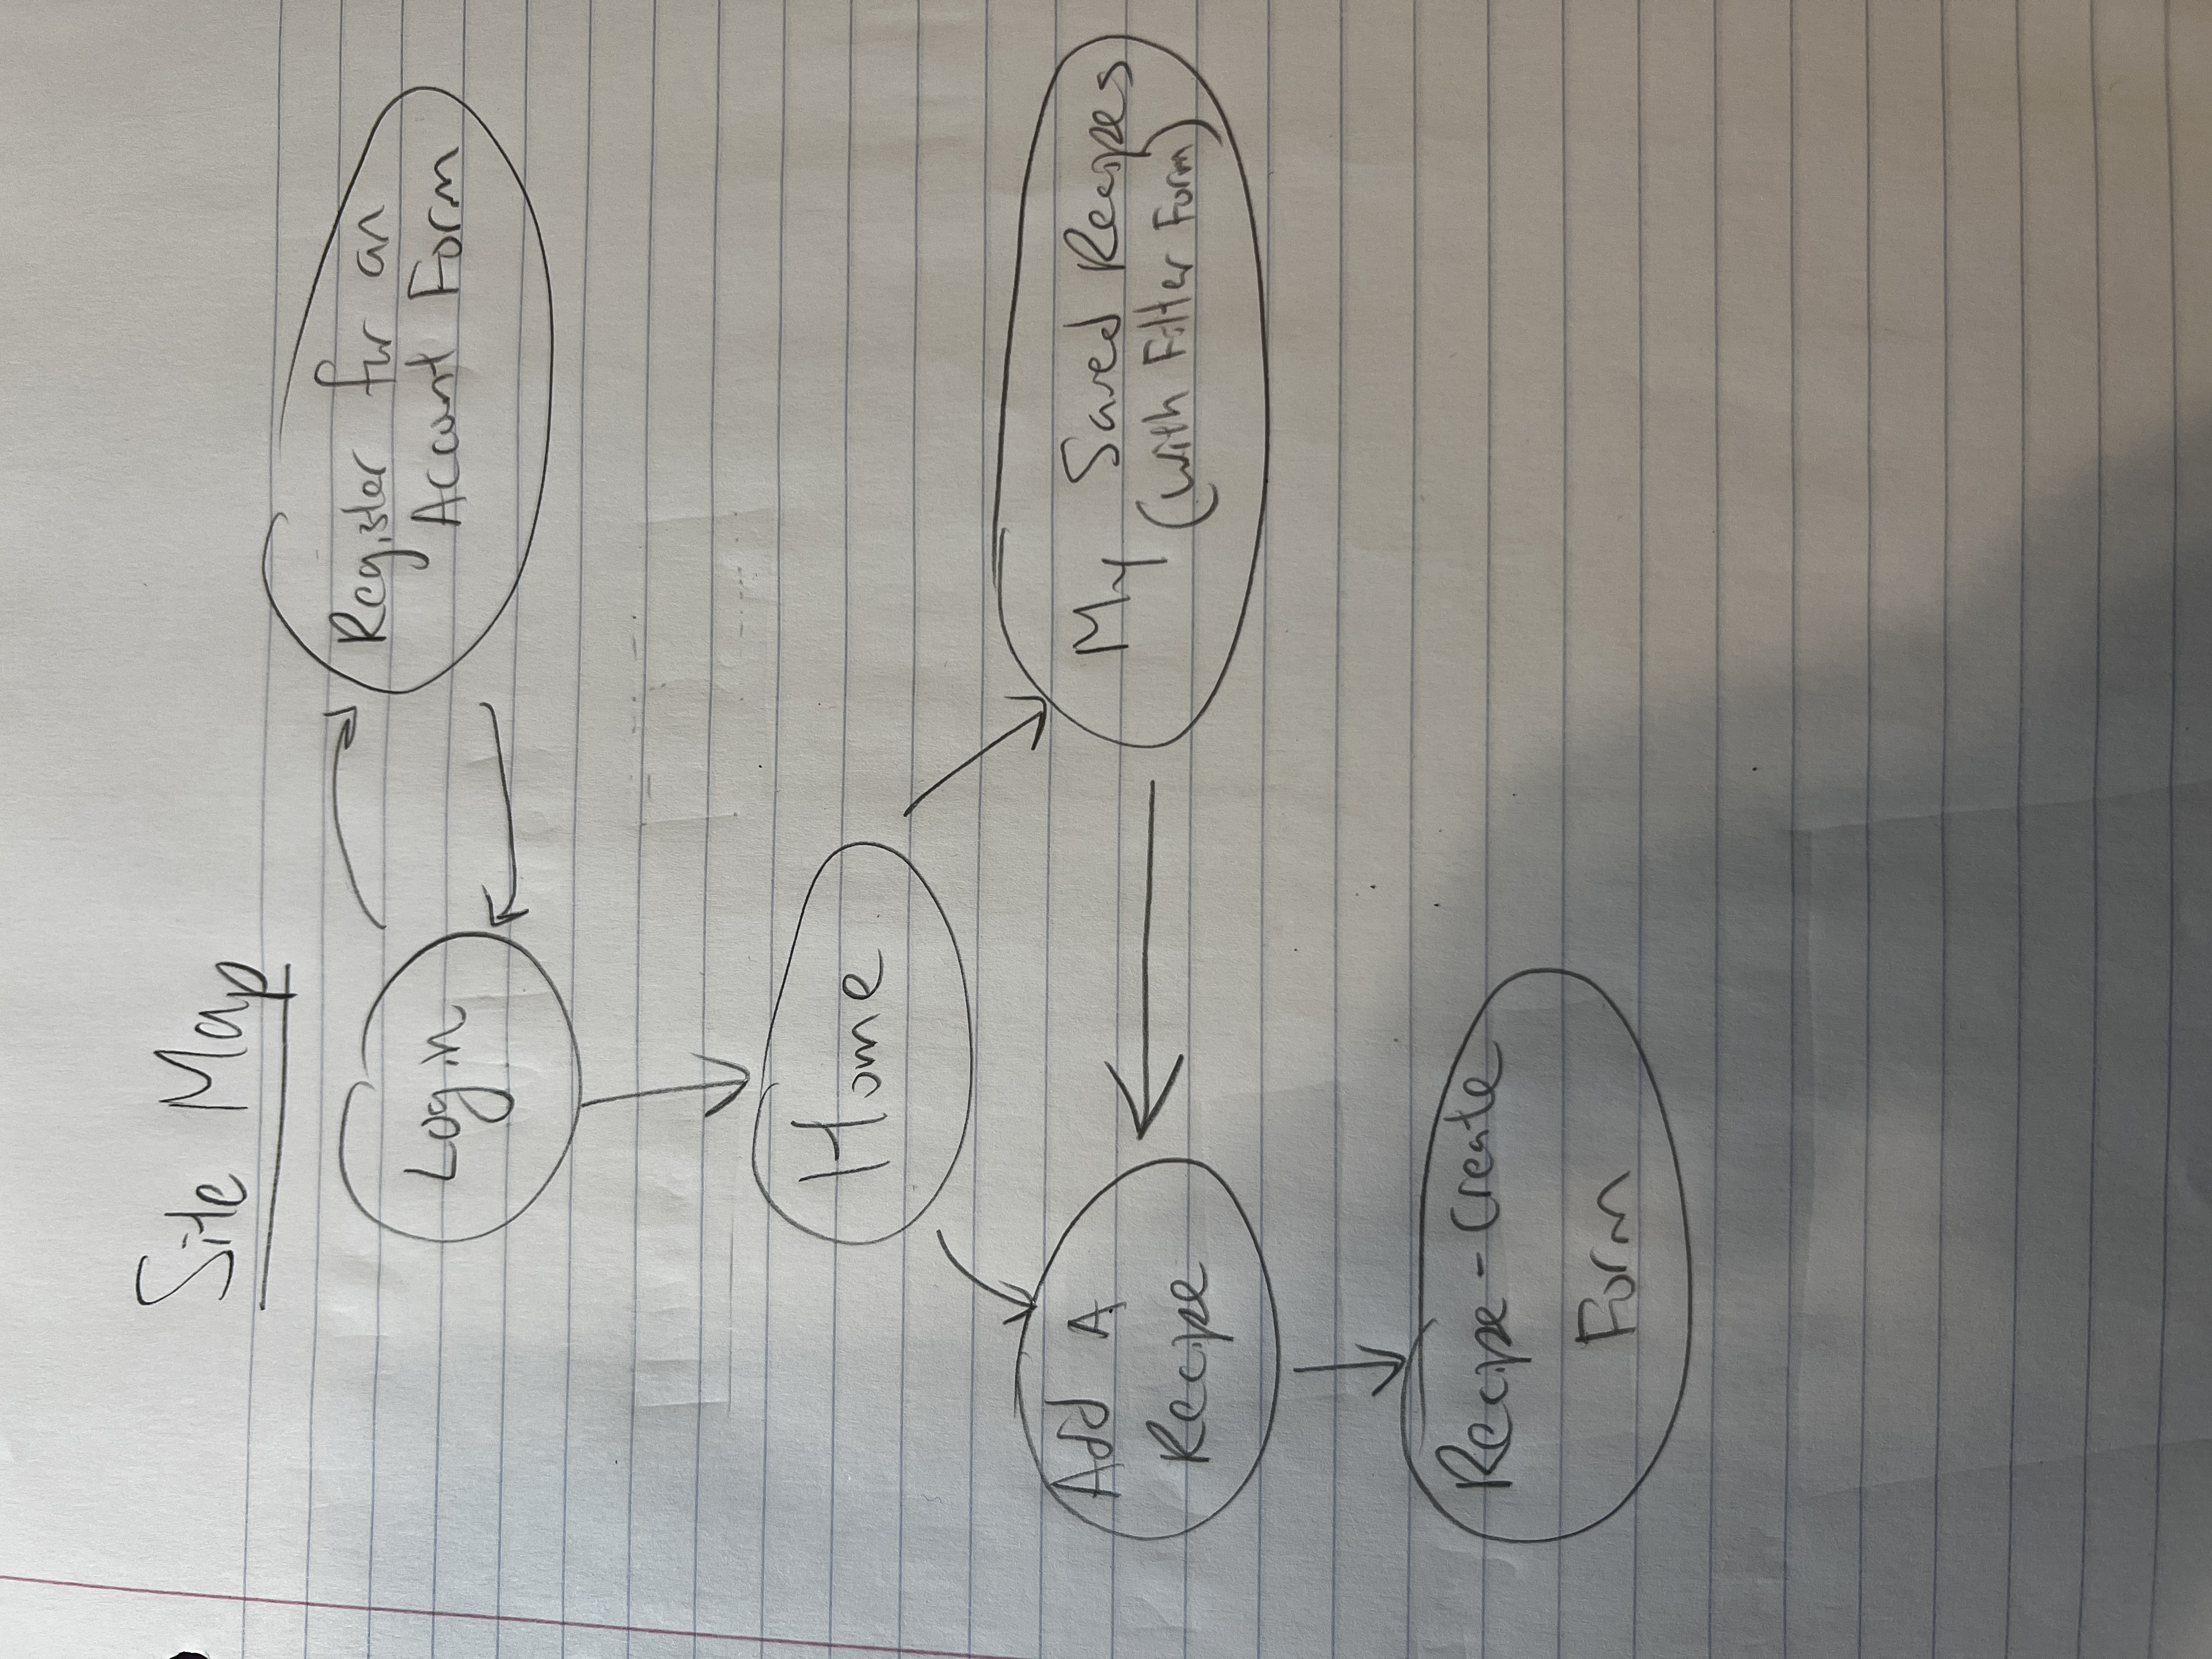 Site Map
Login
Register for an
Account Form
Home
Add A
Recipe
My Saved Recipes
(with Filter Form)
Recipe-Create
Form